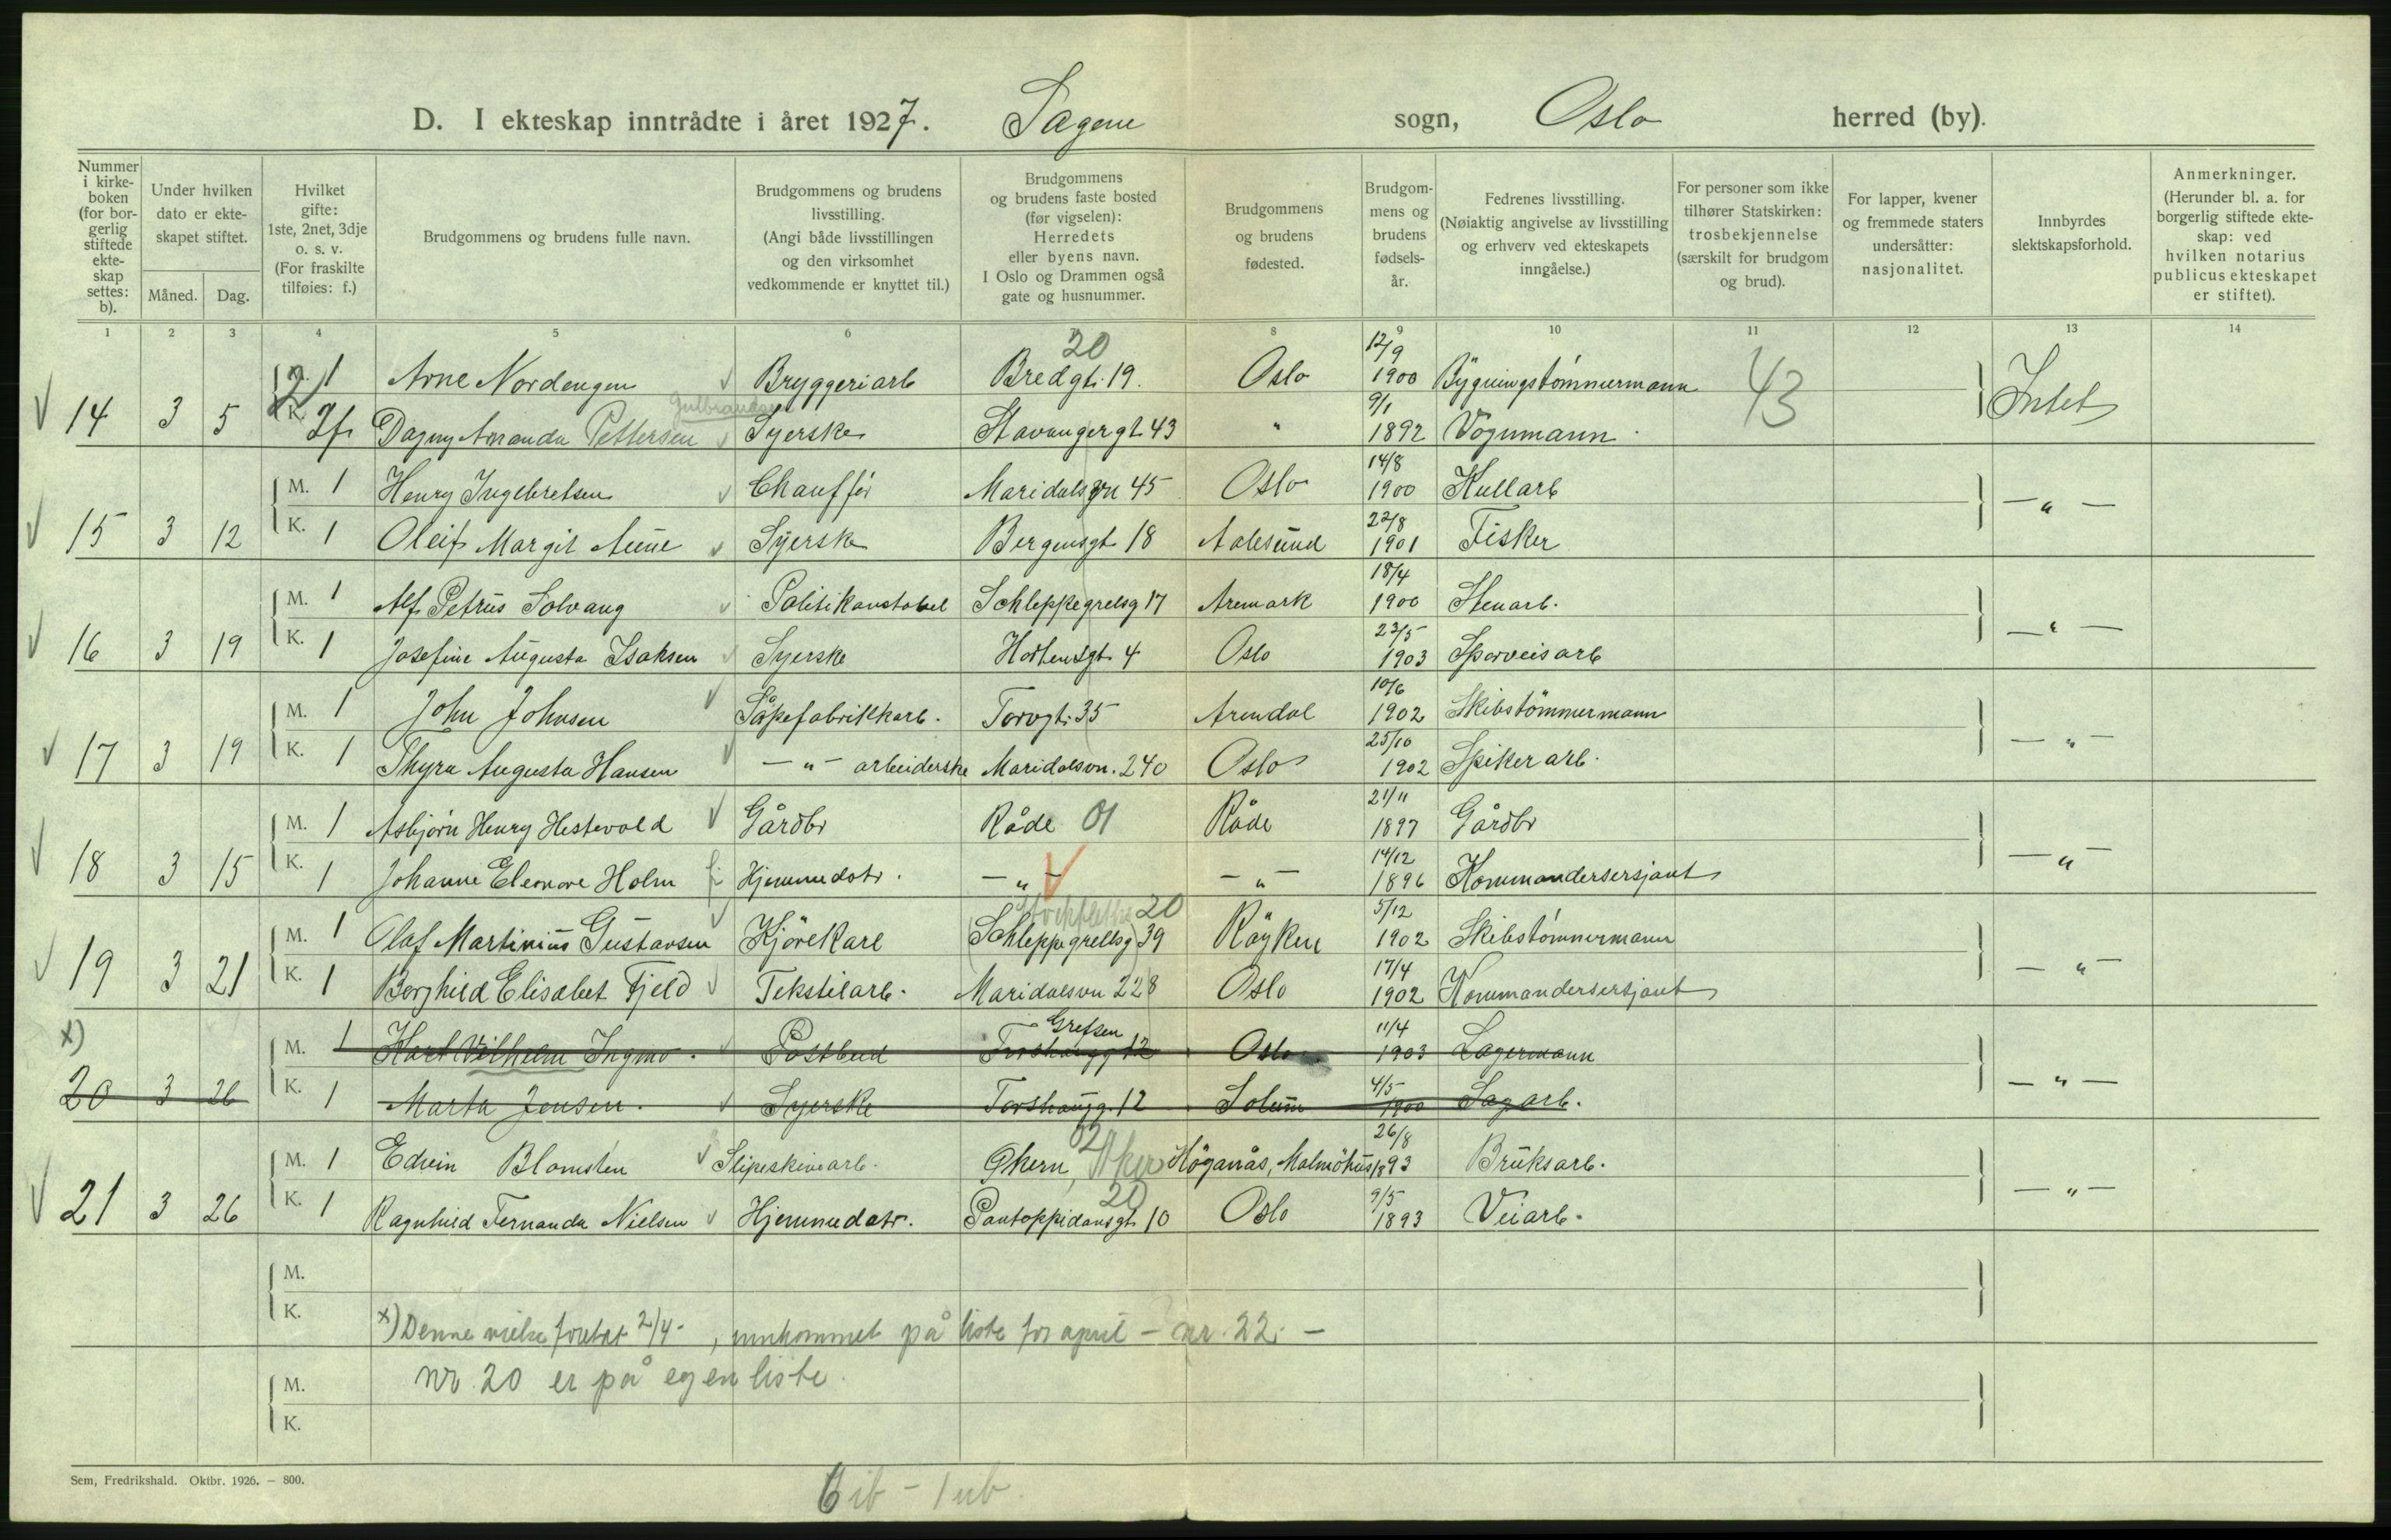 D. I ekteskap inntrådte i året 1927. Sagene sogn, Oslo herred (by).
Nummer i kirkeboken (for borgerlig stiftede ekteskap settes: b).
Under hvilken dato er ekteskapet stiftet.
Måned. Dag.
Hvilket gifte: 1ste, 2net, 3dje o. s. v. (For fraskilte tilføies: f.)
Brudgommens og brudens fulle navn.
Brudgommens og brudens livsstilling. (Angi både livsstillingen og den virksomhet vedkommende er knyttet til.)
Brudgommens og brudens faste bosted (før vigselen): Herredets eller byens navn. I Oslo og Drammen også gate og husnummer.
Brudgommens og brudens fødested.
Brudgommens og brudens fødselsår.
Fedrenes livsstilling. (Nøiaktig angivelse av livsstilling og erhverv ved ekteskapets inngåelse.)
For personer som ikke tilhører Statskirken: trosbekjennelse (særskilt for brudgom og brud).
For lapper, kvener og fremmede staters undersåtter: nasjonalitet.
Innbyrdes slektskapsforhold.
Anmerkninger. (Herunder bl. a. for borgerlig stiftede ekteskap: ved hvilken notarius publicus ekteskapet er stiftet).
1 2 3 4 5 6 8 9 10 11 12 13 14
20
M. 1 Arne Nordengen Bryggeriarb Bredgt. 19. Oslo 12/9 1900 Bygningstømmermann 43 Intet
Gulbrandsen
14 3 5 K. 2f Dagny Amanda Pettersen Syerske Stavangergt 43 " 9/1 1892 Vognmann
M. 1 Henry Ingebretsen Chauffør Maridalsvn 45 Oslo 14/8 1900 Kullarb
15 3 12 K. 1 Oleif Margit Aune Syerske Bergensgt 18 Aalesund 22/8 1901 Fisker — " —
M. 1 Alf Petrus Solvang Politikonstabel Schleppegrelsg 17 Aremark 18/4 1900 Stenarb.
16 3 19 K. 1 Josefine Augusta Isaksen Syerske Hortensgt. 4 Oslo 23/5 1903 Sporveisarb — " —
M. 1 John Johnsen Såpefabrikkarb. Torvgt. 35 Arendal 10/6 1902 Skibstømmermann
17 3 19 K. 1 Thyra Augusta Hansen — " — arbeiderske Maridalsvn. 240 Oslo 25/10 1902 Spikerarb. — " —
M. 1 Asbjørn Henry Hestevold Gårdbr Råde 01 Råde 21/11 1897 Gårdbr
18 3 15 K. 1 Johanne Eleonore Holm Hjemmedatr. — " — — " — 14/12 1896 Kommandersersjant — " —
20
M. 1 Olaf Martinius Gustavsen Kjørekarl (Schleppegrellsg) 39 Røyken 5/12 1902 Skibstømmermann
19 3 21 K. 1 Borghild Elisabet Fjeld Tekstilarb. Maridalsvn 228 Oslo 17/4 1902 Kommandersersjant — " —
x) Grefsen
M. 1 Karl Vilhelm Ingmo. Postbud Torshaugg 12 Oslo 11/4 1903 Lagermann
20 3 26 K. 1 Marta Jensen. Syerske Torshaugg. 12 Solum 4/5 1900 Sagarb. — " —
02
M. 1 Edvin Blomsten Slipeskivearb. Økern, Aker Höganäs, Malmöhus 26/8 1893 Bruksarb.
20
21 3 26 K. 1 Ragnhild Fernanda Nielsen Hjemmedatr. Pontoppidansgt 10 Oslo 9/5 1893 Veiarb. — " —
M.
K.
x) Denne vielse foretat 2/4 -, innkommet på liste for april - nr. 22. -
nr. 20 er på egen liste.
M.
K.
Sem, Fredrikshald. Oktbr. 1926. — 800.
6 ib - 1 ub.